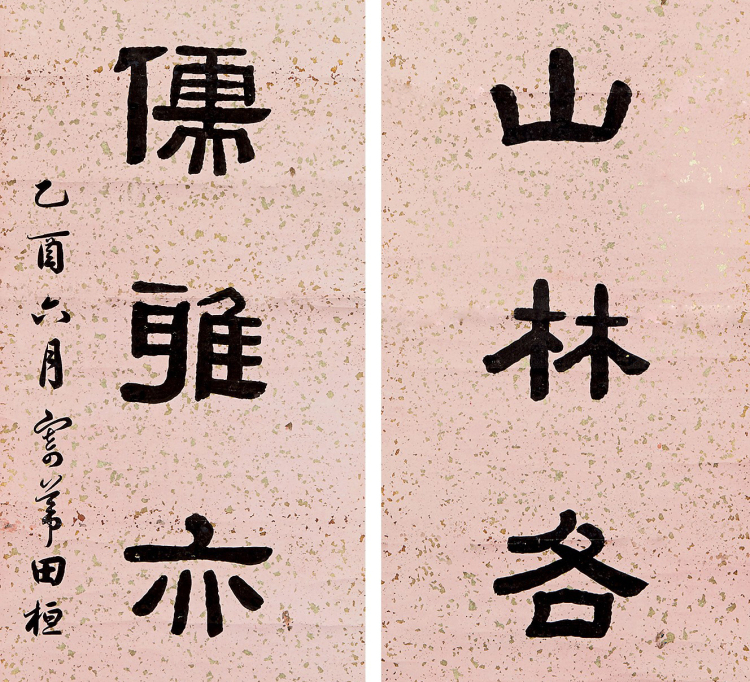 山林各
儒雅亦
乙酉六月寄葦田桓